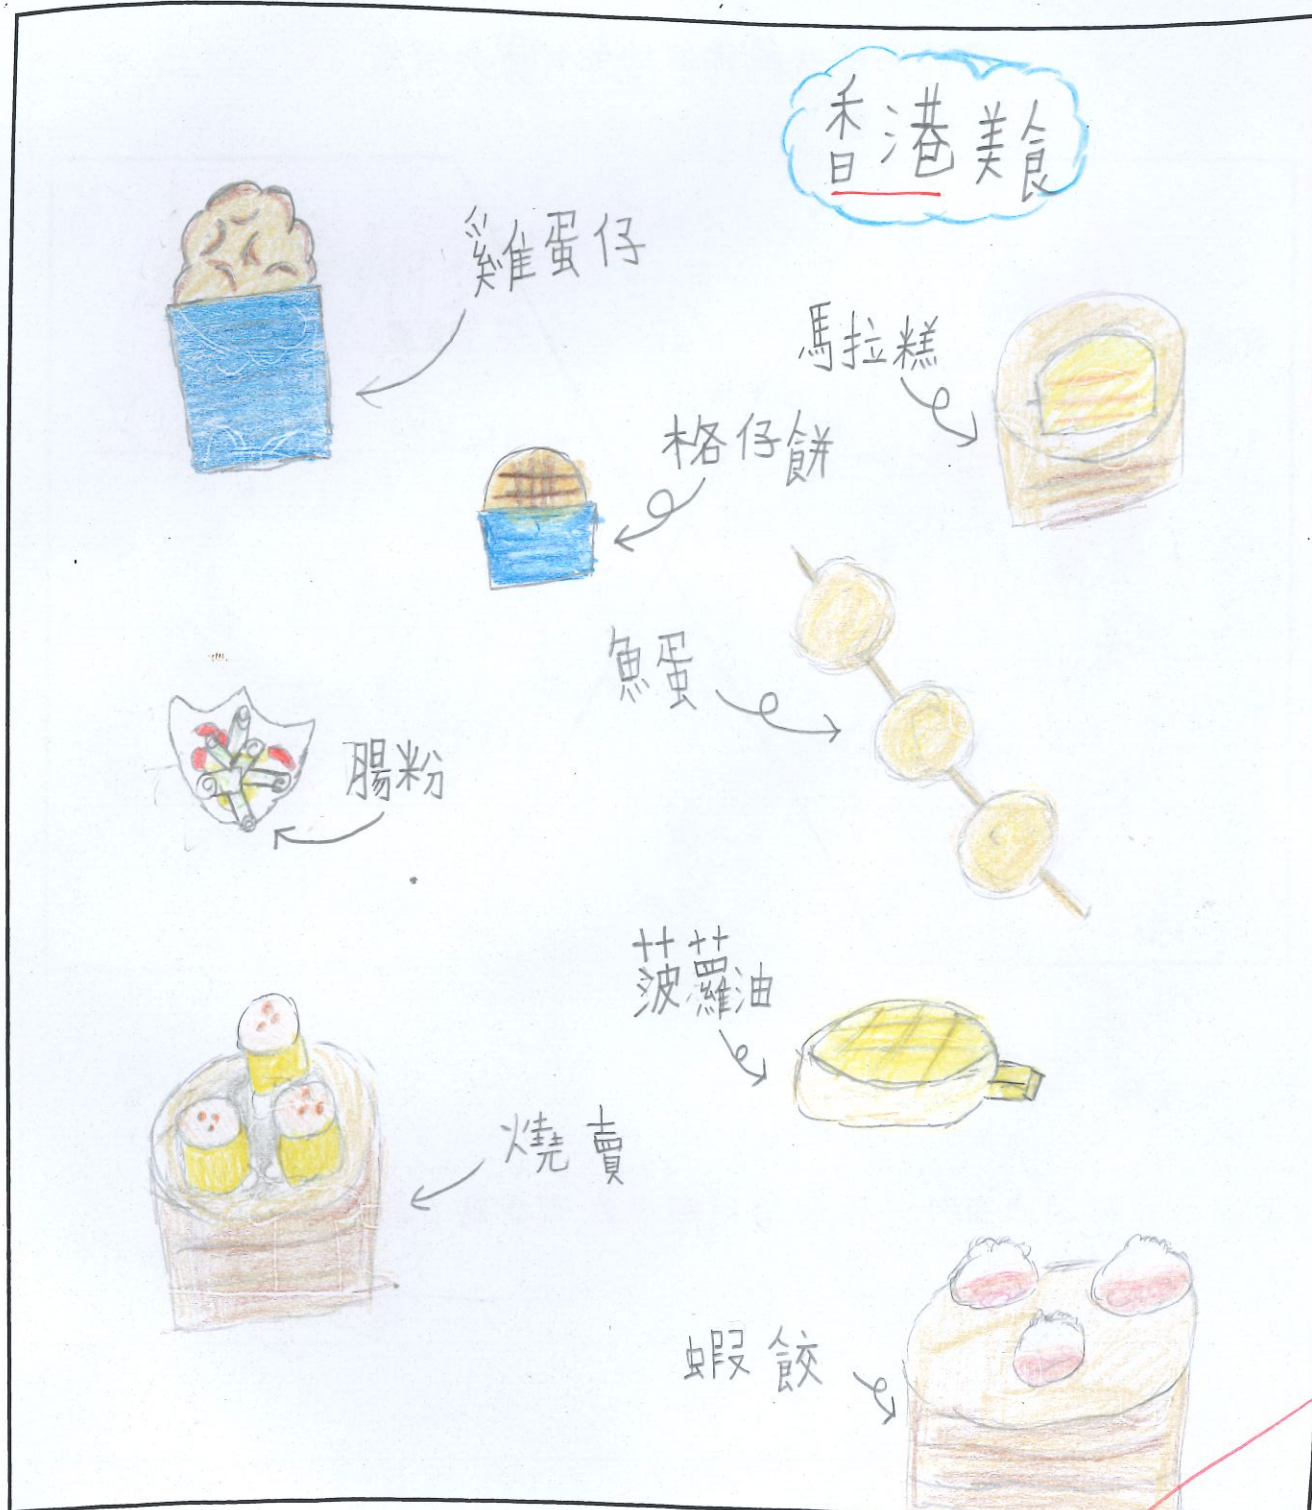 香港美食
雞蛋仔
馬拉糕
格仔餅
魚蛋
腸粉
菠蘿油
燒賣
蝦餃